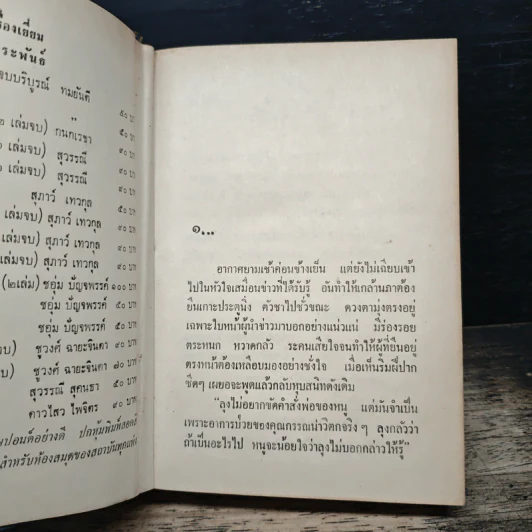 ื่องเยี่ยม
ระพันธ์
จบบริบูรณ์ ทมยันตี
๕๐ บ
๒ เล่มจบ) กนกเรขา ๕๐ บ
เล่มจบ) สุวรรณี ๙๐ บา
เล่มจบ) สุวรรณี ๙๐ บา
สุภาว์ เทวกุล ๕๐ บา
เล่มจบ) สุภาว์ เทวกุล ๙๐ บา
เล่มจบ) สุภาว์ เทวกุล ๙๐ บา
(๒เล่ม) ชอุ่ม ปัญจพรรค์ ๑๐๐ บา
ชอุ่ม ปัญจพรรค์ ๕๐ บา
ชอุ่ม ปัญจพรรค์ ๕๐ บา
บ) ชูวงศ์ ฉายะจินดา ๙๐ บา
ชูวงศ์ ฉายะจินดา ๕๐ บา
สุวรรณี สุคนธา ๕๐ บา
ดาวไสว ไพจิตร ๔๐ บา
ปอนด์อย่างดี ปกหุ้มพิมพ์สอดสี
สำหรับห้องสมุดของสถาบันทุกแห่ง
๑...
อากาศยามเช้าค่อนข้างเย็น แต่ยังไม่เฉียบเข้า
ไปในหัวใจเสมือนข่าวที่ได้รับรู้ อันทำให้เกล้านภาต้อง
ยืนเกาะประตูนิ่ง ตัวชาไปชั่วขณะ ดวงตามุ่งตรงอยู่
เฉพาะใบหน้าผู้นำข่าวมาบอกอย่างแน่วแน่ มีร่องรอย
ตระหนก หวาดกลัว ระคนเสียใจจนทำให้ผู้ที่ยืนอยู่
ตรงหน้าต้องเหลือบมองอย่างชั่งใจ เมื่อเห็นริมฝีปาก
ซีดๆ เผยอจะพูดแล้วกลับหุบสนิทดังเดิม
“ลุงไม่อยากขัดคำสั่งพ่อของหนู แต่มันจำเป็น
เพราะอาการป่วยของคุณกรรณ์น่าวิตกจริง ๆ ลุงกลัวว่า
ถ้าเป็นอะไรไป หนูจะน้อยใจว่าลุงไม่บอกกล่าวให้รู้”